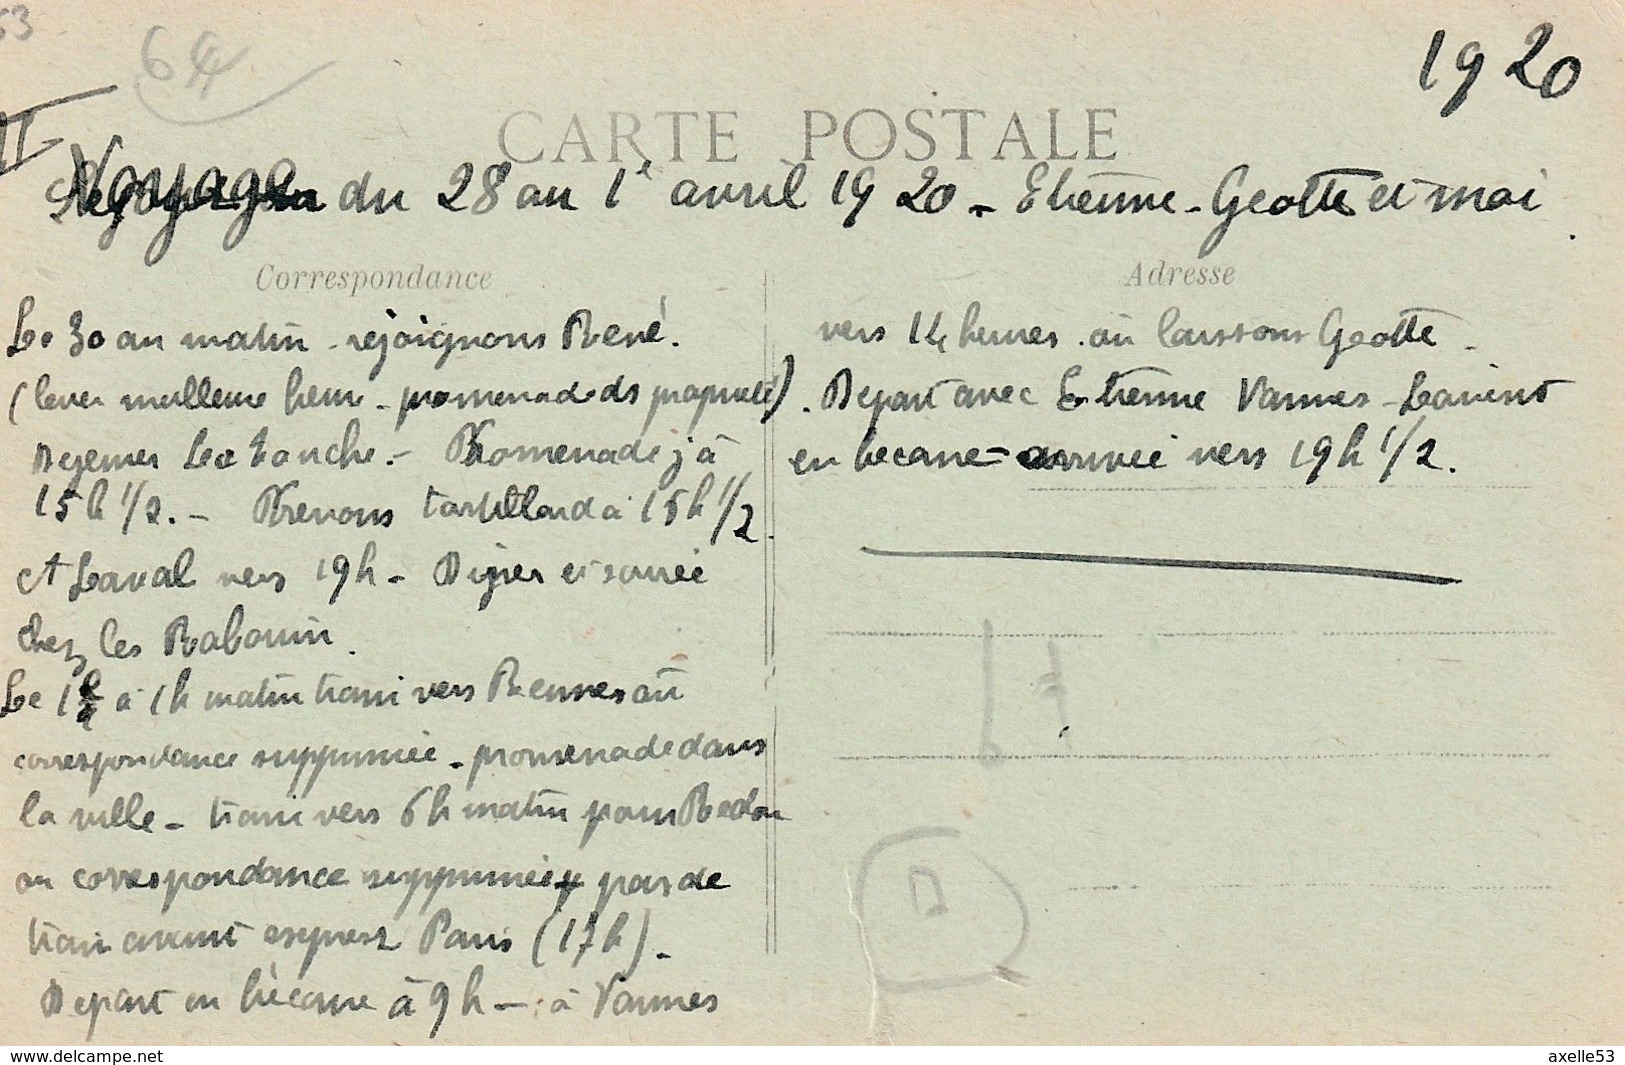 53
64
1920
II
CARTE POSTALE
Voyage du 28 au 1er avril 1920 - Etienne - Geotte et moi
Correspondance
Le 30 au matin - rejoignons René.
(lever meilleure heure - promenade ds propriété).
Dejeuner La Touche. - Promenade j à
15h 1/2. - Prenons tortillard à 15h 1/2.
et Laval vers 19h - Diner et soirée
chez les Rabouin.
Le 1er à 1h matin train vers Rennes où
correspondance supprimée - promenade dans
la ville - train vers 6h matin pour Redon
ou correspondance supprimée pas de
train avant express Paris (17h).
Depart en bécane à 9h - à Vannes
Adresse
vers 14 heures où laissons Geotte -
Depart avec Etienne Vannes - Lorient
en becane - arrivée vers 19h 1/2.
D
www.delcampe.net
axelle53